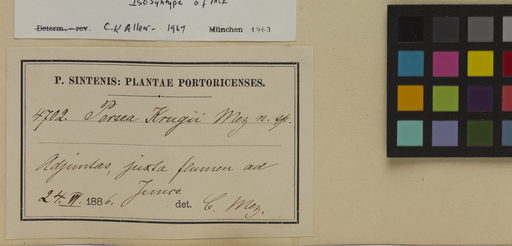 Isosyntype of incl.
Determ. rev. C.K. Allen - 1967 München 1963
P. SINTENIS: PLANTAE PORTORICENSES.
4702. Persea Krugii Mez n. sp.
Adjuntas, juxta flumen ad
Junco
24. VI. 1886. det. C. Mez.